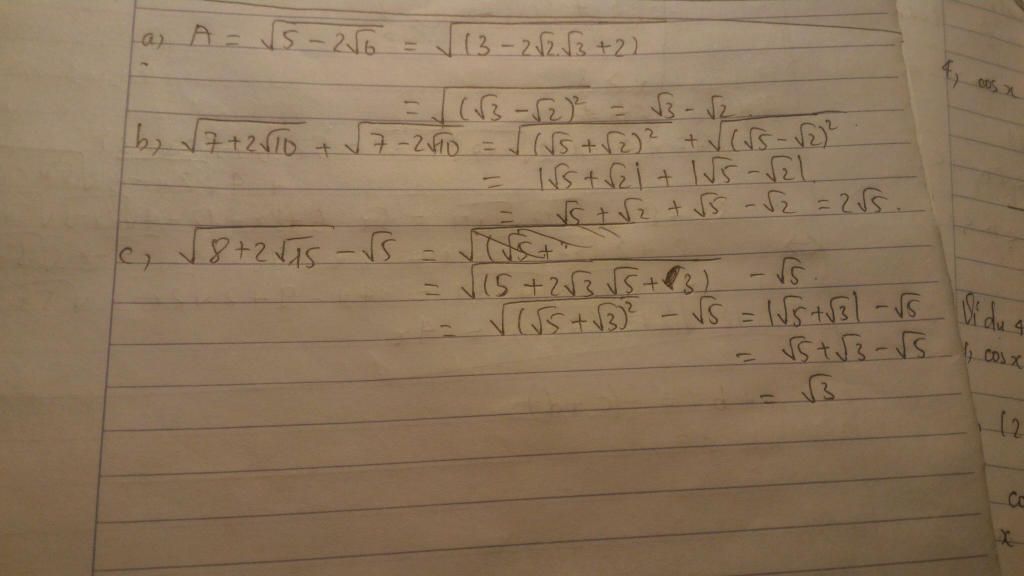 a, A = √(5 − 2√6) = √((3 − 2√2√3 + 2)
= √((√3 − √2)²) = √3 − √2
b, √(7 + 2√10) + √(7 − 2√10) = √((√5 + √2)²) + √((√5 − √2)²)
= |√5 + √2| + |√5 − √2|
= √5 + √2 + √5 − √2 = 2√5.
c, √(8 + 2√15) − √5 = √((√5 +
= √((5 + 2√3√5 + 3)) − √5.
= √((√5 + √3)²) − √5 = |√5 + √3| − √5
= √5 + √3 − √5
= √3
4, cos x
Ví dụ 4
1, cos x
(2
co
x